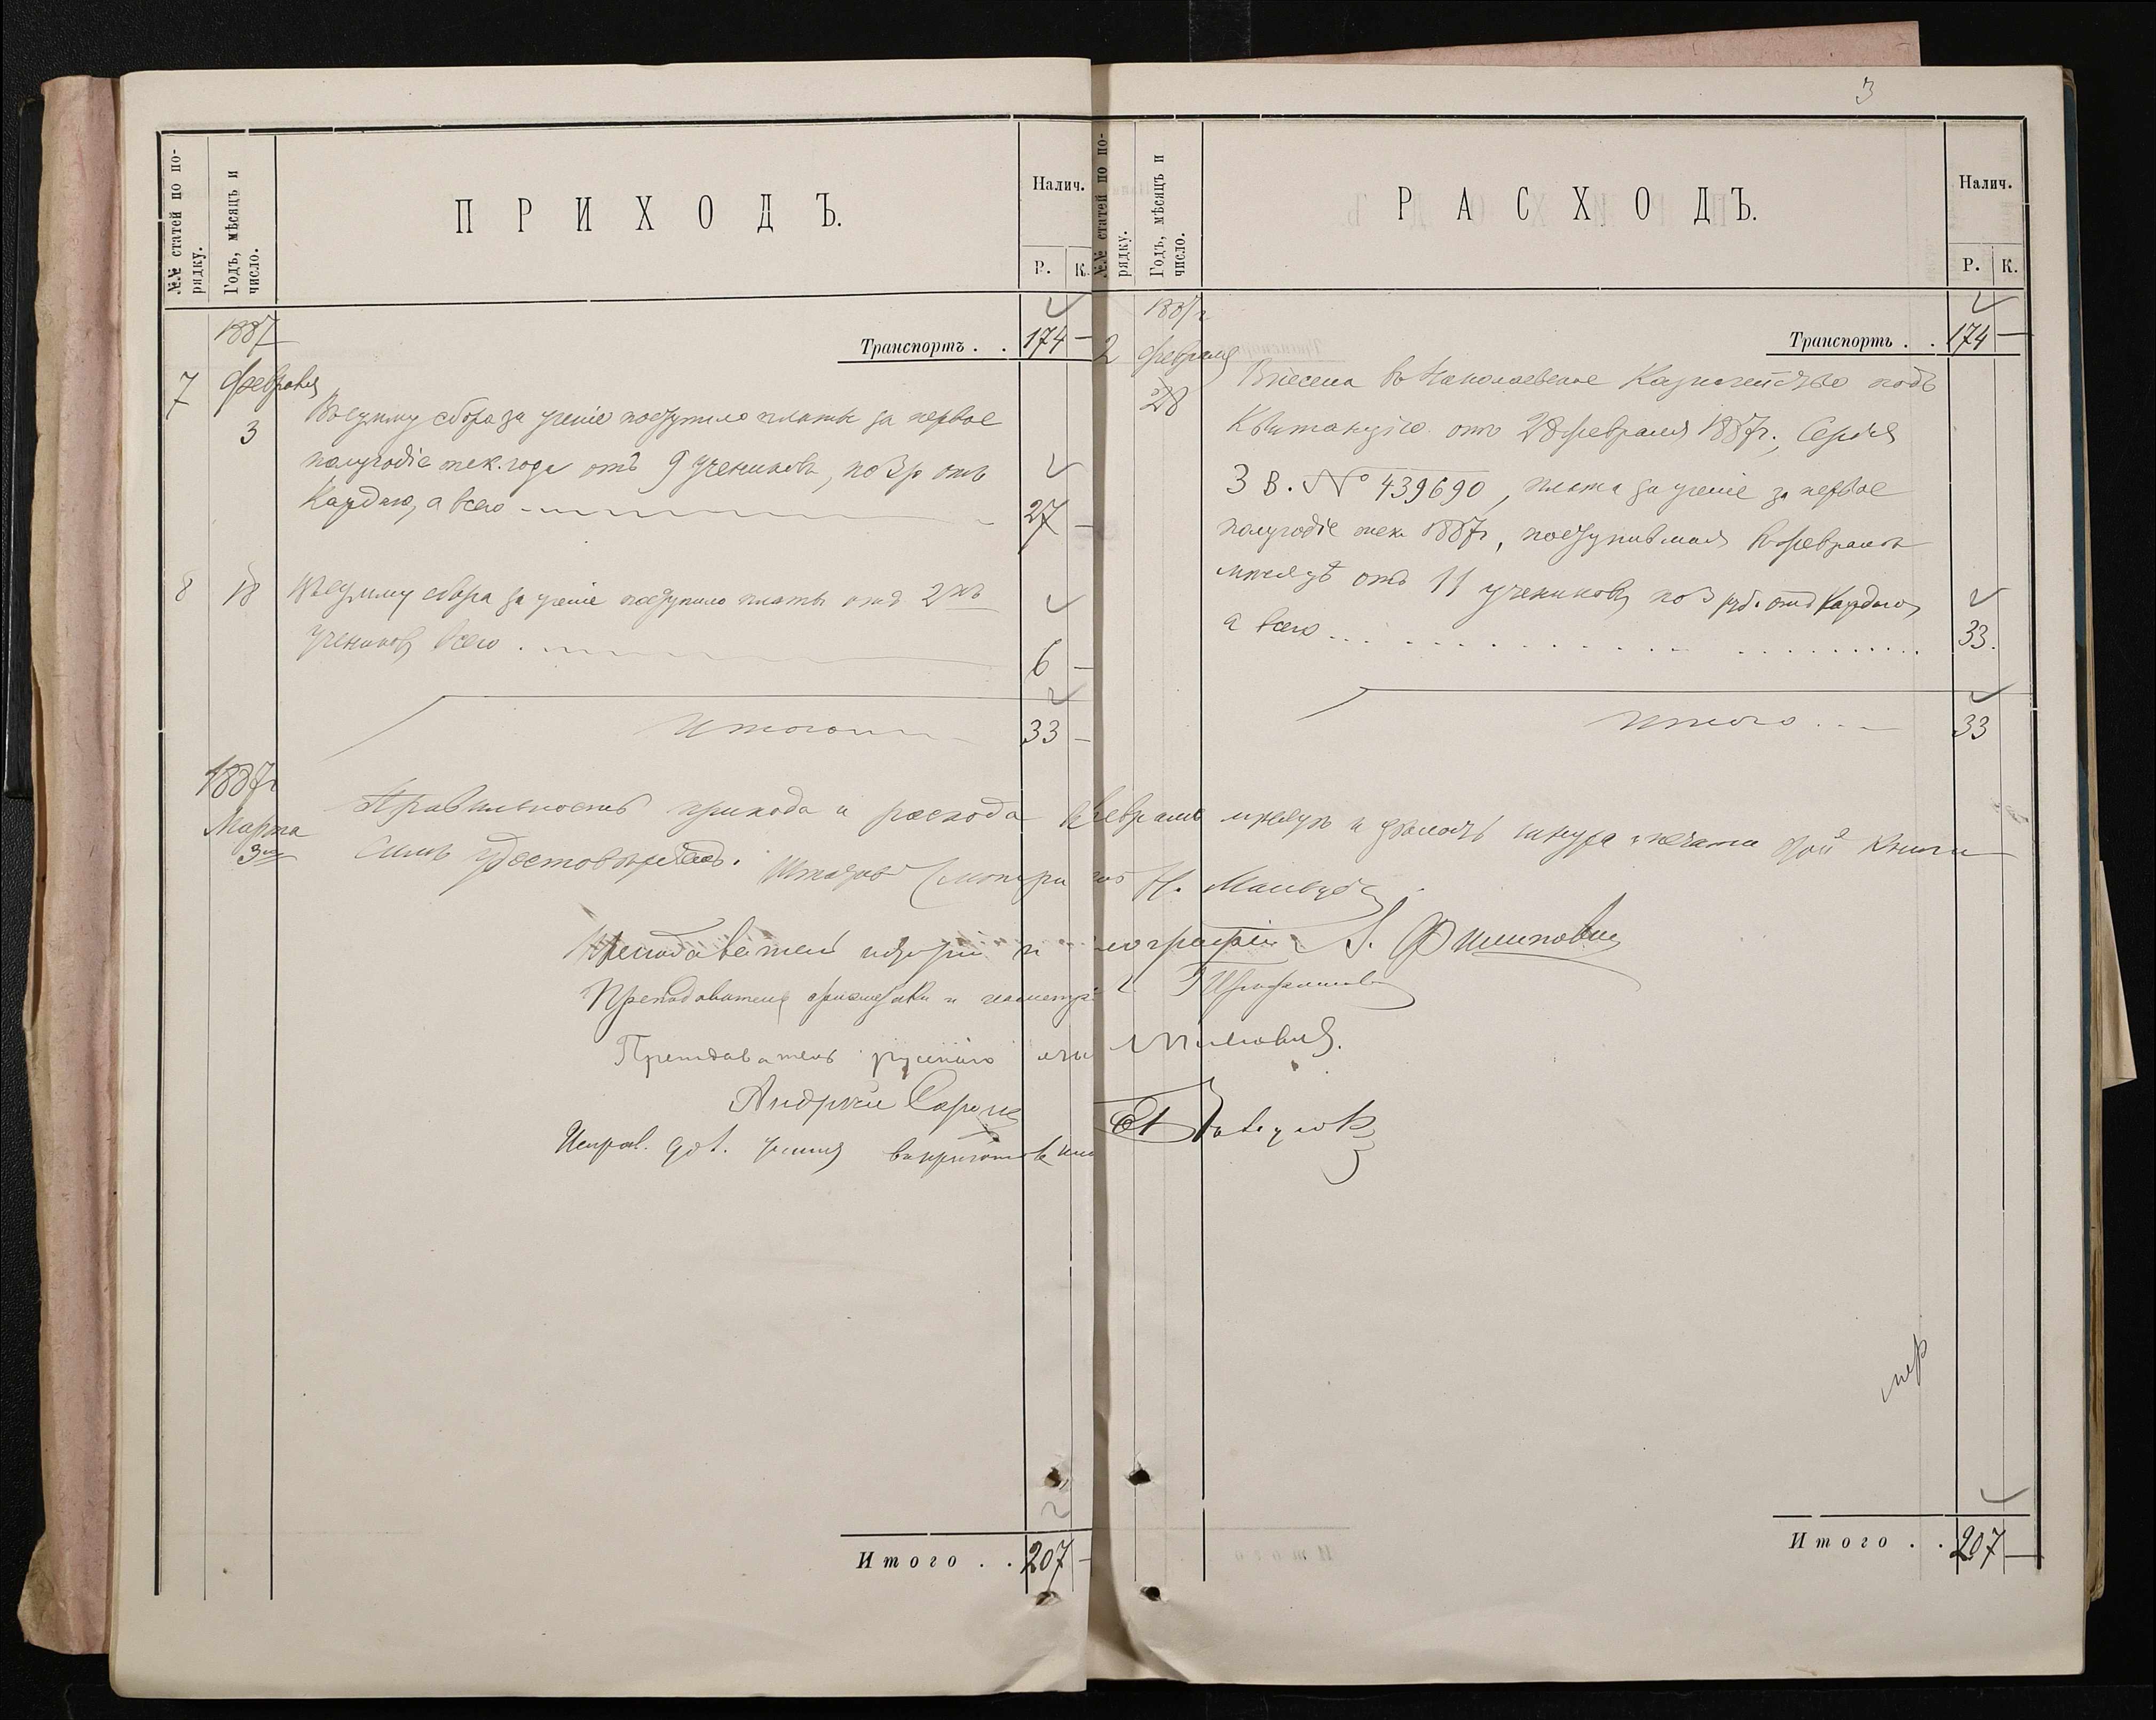 3
№№ статей по по-
рядку.
Годъ, мѣсяцъ и
число.
ПРИХОДЪ.
Налич.
Р. К.
1887
Транспортъ . . 174 —
7 Февраля
3
сбора за ученіе поступило платы за первое
полугодіе тек. года отъ 9 учениковъ, по 3 р отъ
Каждаго, а всего 27 —
8 18 сбора за ученіе поступило платы отъ 2хъ
учениковъ, всего 6 —
Итого 33 —
№№ статей по по-
рядку.
Годъ, мѣсяцъ и
число.
РАСХОДЪ.
Налич.
Р. К.
1887 г
Транспортъ . . 174 —
2 Февраля
28
Внесена въ Николаевское Казначейство подъ
Квитанцію отъ 28 февраля 1887 г., Серія
З В. № 439690, плата за ученіе за первое
полугодіе тек. 1887 г, поступившая въ февралѣ
мѣсяцѣ отъ 11 учениковъ, по 3 руб. отъ Каждаго,
а всего . . . 33.
Итого . . . 33
1887 г
Марта
3го
Правильность прихода и расхода въ Февралѣ мѣсяцѣ и цѣлость шнура и печати этой Книги
симъ удостовѣряемъ. Штатный Смотритель Н.
Преподаватель исторіи и географіи Филиповичъ
Преподаватель арифметики и геометріи
Преподаватель русскаго языка
Андрей
Исправ. дол. учителя
Итого . . 207 —
Итого . . 207 —